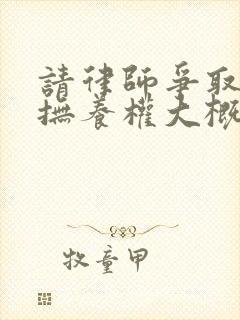 請律師爭取
撫養權大概
牧童甲